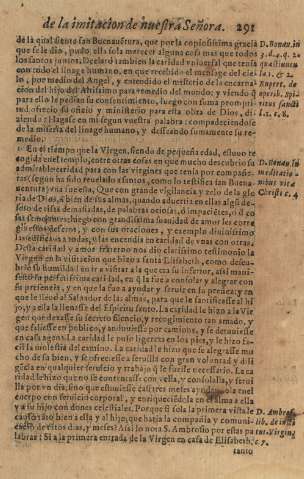 de la imitacion de nuestra Señora. 291
de la qual siento san Buenauetura, que por la copiosissima gracia
que se le dio, pudo ella sola merecer alguna cosa mas que todos
los santos juntos. Declarò tambien la caridad vniuersal que tenia
con todo el linage humano, en que recebido el mensage del cie-
lo, por medio del Angel, y entendido el misterio de la encarna-
cion del hijo del Altissimo para remedio del mundo; y viendo q̃
para ello le pedien su consentimiento, luego con suma promp-
tud ofrecio su oficio y ministerio para esta obra de Dios, di-
ziendo: Hagase en mi segun vuestra palabra: compadeciendose
de la miseria del linage humano, y desseando sumamente su re-
medio.
En el tiempo que la Virgen, siendo de pequeña edad, estuuo re
cogida en el templo, entre otras cosas en que mucho descubrio su
admirable caridad para con las virgines que tenia por compañe-
ras (segun ha sido reuelado a santos, como lo testifica san Buena-
uentura) vna fue esta, Que con grande vigilancia y zelo de la glo
ria de Dios, i bien de sus almas, quando aduertia en ellas algũ de-
feto de risa demasiada, de palabras ociosas,
con grandissima suauidad de amor les corre
gia y con sus oraciones, y exemplo diuinissimo
las a todas, i las encendia en caridad de vnas con otras.
Desta caridad y amor fraterno nos dio clarissimo testimonio la
Virgen en la visitacion que hizo a santa Elisabeth, como descu-
brió su humildad en ir a visitar a la que era su inferior, assi mani-
festò su perfetissima caridad, en q̃ la fue a consolar y alegrar con
su presencia, y en que la fue a ayudar y seruir en su preñez; y en
que le lleuò al Saluador de las almas, para que le santificasse al hi
jo, y a ella la llenasse del Espiritu santo. La caridad le hizo a la Vir
gen que dexasse su secreto silencio, y recogimiento tan amado, y
que saliesse en publico, y anduuiesse por caminos, y se detuuiesse
en casa agena. La caridad le puso ligereza en los pies, y le hizo fa-
cil la molestia del camino. La caridad le hizo que se alegrasse mu
cho de su bien, y se ofreciesse a seruilla con gran voluntad y dili
gẽcia en qualquier seruicio y trabajo q̃ le fuesse necessario. La ca
ridad le hizo que no se contentasse con vella, y consolalla, y serui
lla por vn dia; sino que estuuiesse casi tres meses ayudandola en el
cuerpo con seruicio corporal, y enriqueciẽdola en el anima a ella
y a su hijo con dones celestiales. Porque si sola la primera vista le
causò tãto bien a ella y al hijo, que haria la compañia y comuni-
cacion de estos dias, y meses? Assi lo nota S. Ambrosio por estas pa
labras: Si a la primera entrada de la Virgen en casa de Elisabeth,
tanto
D. Bonau. in
3. d. 4. q. 2.
quæstiuncu
la. 1. & 2.
Rupert. de
spiri-
tus sancti
li. 1. c. 8.
D. Bonau. in
meditatio-
nibus vitæ
Christi c. 4
D. Ambros.
lib. de insti-
tut. Virginis
c. 7.